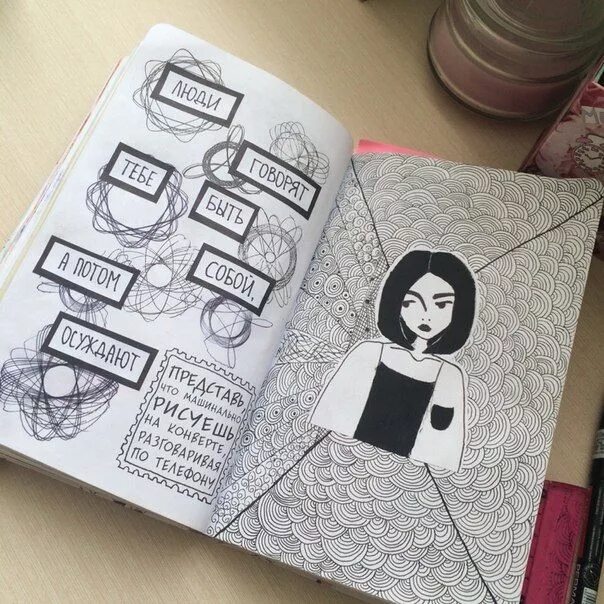 ЛЮДИ
ГОВОРЯТ
ТЕБЕ
БЫТЬ
СОБОЙ,
А ПОТОМ
ОСУЖДАЮТ
ПРЕДСТАВЬ
ЧТО МАШИНАЛЬНО
РИСУЕШЬ
НА КОНВЕРТЕ,
РАЗГОВАРИВАЯ
ПО ТЕЛЕФОНУ